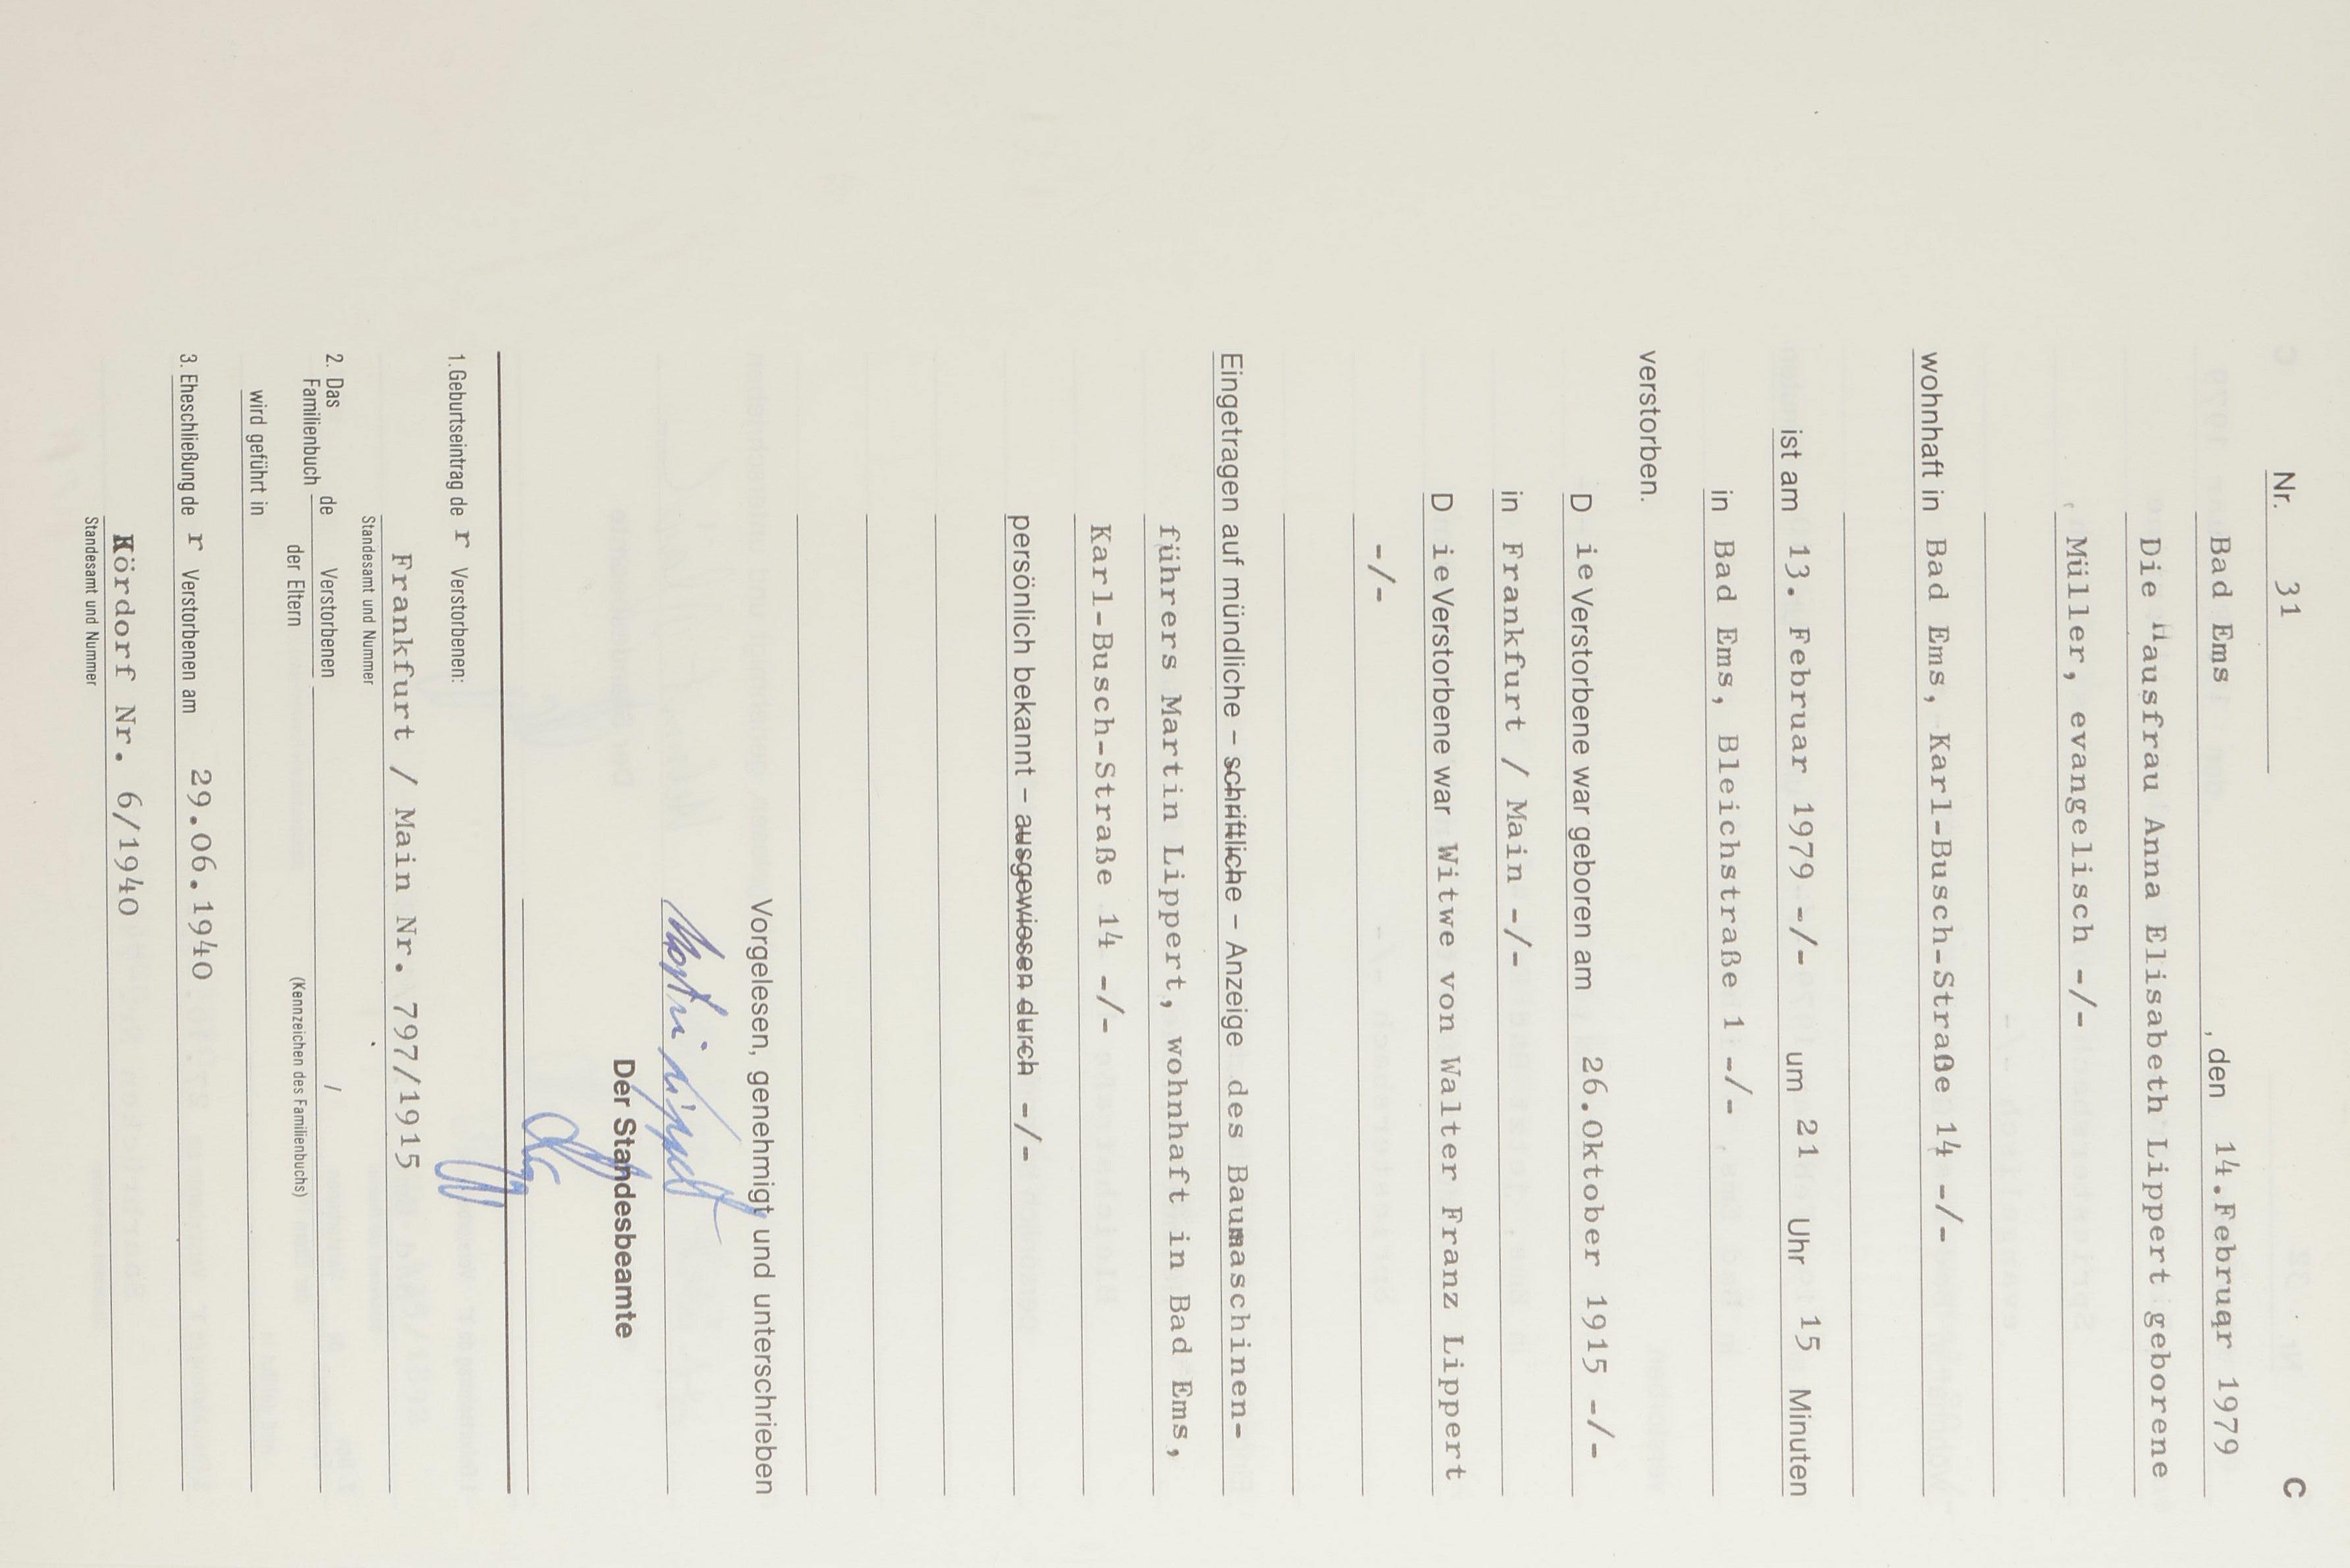 C
Nr. 31
Bad Ems, den 14.Februar 1979
Die Hausfrau Anna Elisabeth Lippert geborene
Müller, evangelisch -/-
wohnhaft in Bad Ems, Karl-Busch-Straße 14 -/-
ist am 13. Februar 1979 -/- um 21 Uhr 15 Minuten
in Bad Ems, Bleichstraße 1 -/-
verstorben.
Die Verstorbene war geboren am 26.Oktober 1915 -/-
in Frankfurt / Main -/-
Die Verstorbene war Witwe von Walter Franz Lippert
-/-
Eingetragen auf mündliche – schriftliche – Anzeige des Baumaschinen-
führers Martin Lippert, wohnhaft in Bad Ems,
Karl-Busch-Straße 14 -/-
persönlich bekannt – ausgewiesen durch -/-
Vorgelesen, genehmigt und unterschrieben
Martin Lippert
Der Standesbeamte
1. Geburtseintrag der Verstorbenen:
Frankfurt / Main Nr. 797/1915
Standesamt und Nummer
2. Das Familienbuch de Verstorbenen /
der Eltern (Kennzeichen des Familienbuchs)
wird geführt in
3. Eheschließung der Verstorbenen am 29.06.1940
Kördorf Nr. 6/1940
Standesamt und Nummer